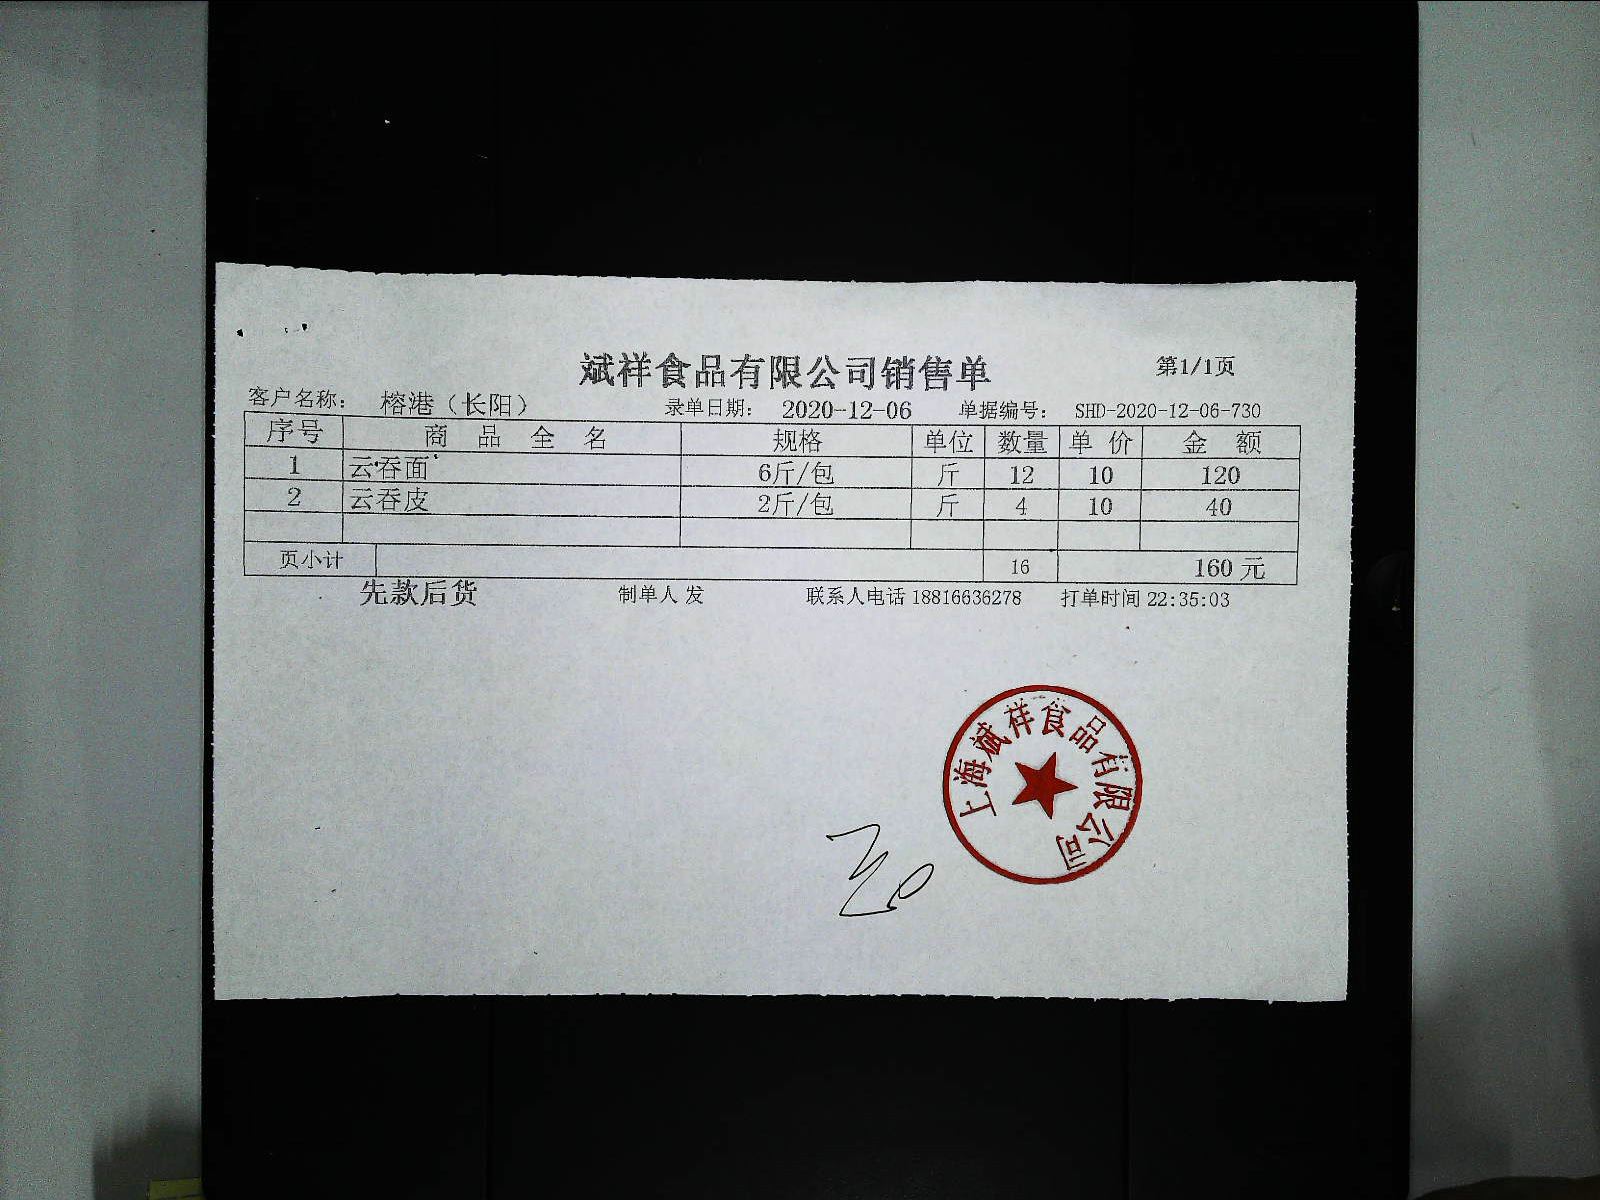 斌祥食品有限公司销售单 第1/1页
客户名称： 榕港（长阳） 录单日期： 2020-12-06 单据编号： SHD-2020-12-06-730
序号 商品全名 规格 单位 数量 单价 金额
1 云吞面 6斤/包 斤 12 10 120
2 云吞皮 2斤/包 斤 4 10 40
页小计 16 160 元
先款后货 制单人 发 联系人电话 18816636278 打单时间 22:35:03
上海斌祥食品有限公司